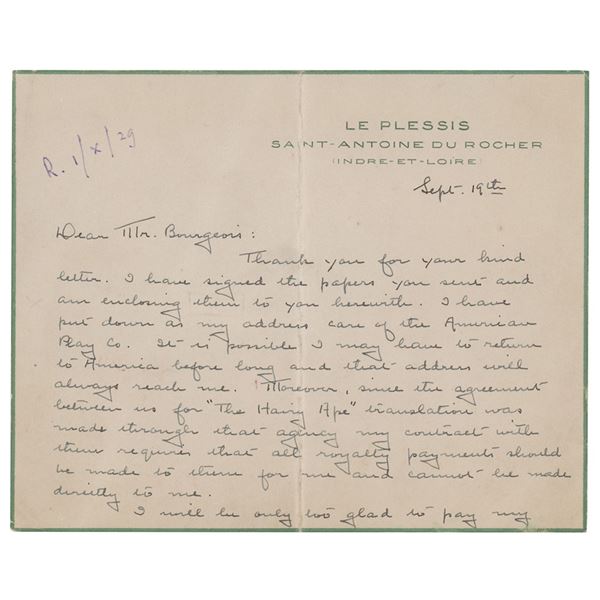 LE PLESSIS
SAINT-ANTOINE DU ROCHER
(INDRE-ET-LOIRE)
R. 1/X/29
Sept. 19th
Dear Mr. Bourgeois:
Thank you for your kind
letter. I have signed the papers you sent and
am enclosing them to you herewith. I have
put down as my address care of the American
Play Co. It is possible I may have to return
to America before long and that address will
always reach me. Moreover, since the agreement
between us for "The Hairy Ape" translation was
made through that agency my contract with
them requires that all royalty payments should
be made to them for me and cannot be made
directly to me.
I will be only too glad to pay my